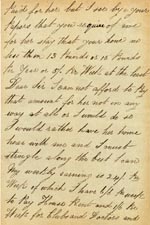 Paid for her but I see by your
Papers that you require of me
for her stay that your home is
no less than 13 Pounds or 12 Pounds
Per Year or 5/- Per Week at the least
Dear Sir I can not afford to Pay
that amount for her not in any
way at all or I would do so
I would rather have her home
hear with me and I must
struggle along the best I can
My weekly earning is 24/- Per
Week of which I have 6/6 Per week
to Pay House Rent and 1/6 Per
Week for Clubs and Doctors and